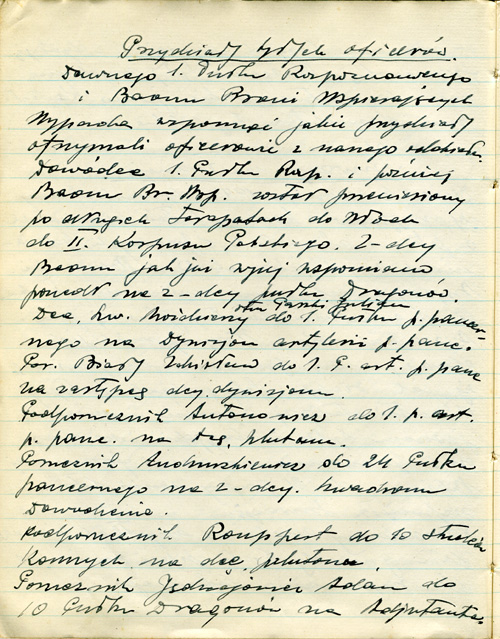 Przydziały tych oficerów.
Dawnego 1. Pułku Rozpoznawczego
i Baonu Broni Wspierających
Wypada wspomnieć jakie przydziały
otrzymali oficerowie z naszego oddziału.
Dowódca 1. Pułku Rozp. i później
Baonu Br. Wsp. został przeniesiony
po długich tarapatach do Włoch
do II. Korpusu Polskiego. Z-dcy
Baonu jak już wyżej wspomniano
poszedł na z-dcy pułku Dragonów.
Dca, szw. do 1. Pułku p. pancer-
nego na Dywizjon artylerii p. panc.
Por. Biały Zdzisław do 1. P. art. p. panc
na zastępcę dcy dywizjonu.
Podporucznik Antonowicz do 1. p. art.
p. panc. na dcę, plutonu.
Porucznik Andruszkiewicz do 24 Pułku
pancernego na z-dcy. szwadronu
dowodzenia.
Podporucznik Rouppert do 10 strzelców
Konnych na dcę plutonu.
Porucznik Adam do
10 Pułku Dragonów na Adjutanta.